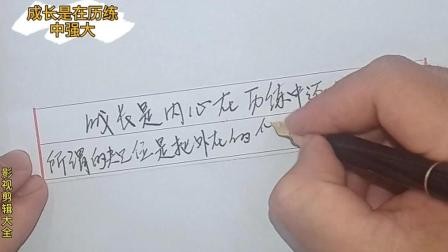 成长是在历练
中强大
成长是内心在历练中逐
所谓的地位是把外在的
影视剪辑大全